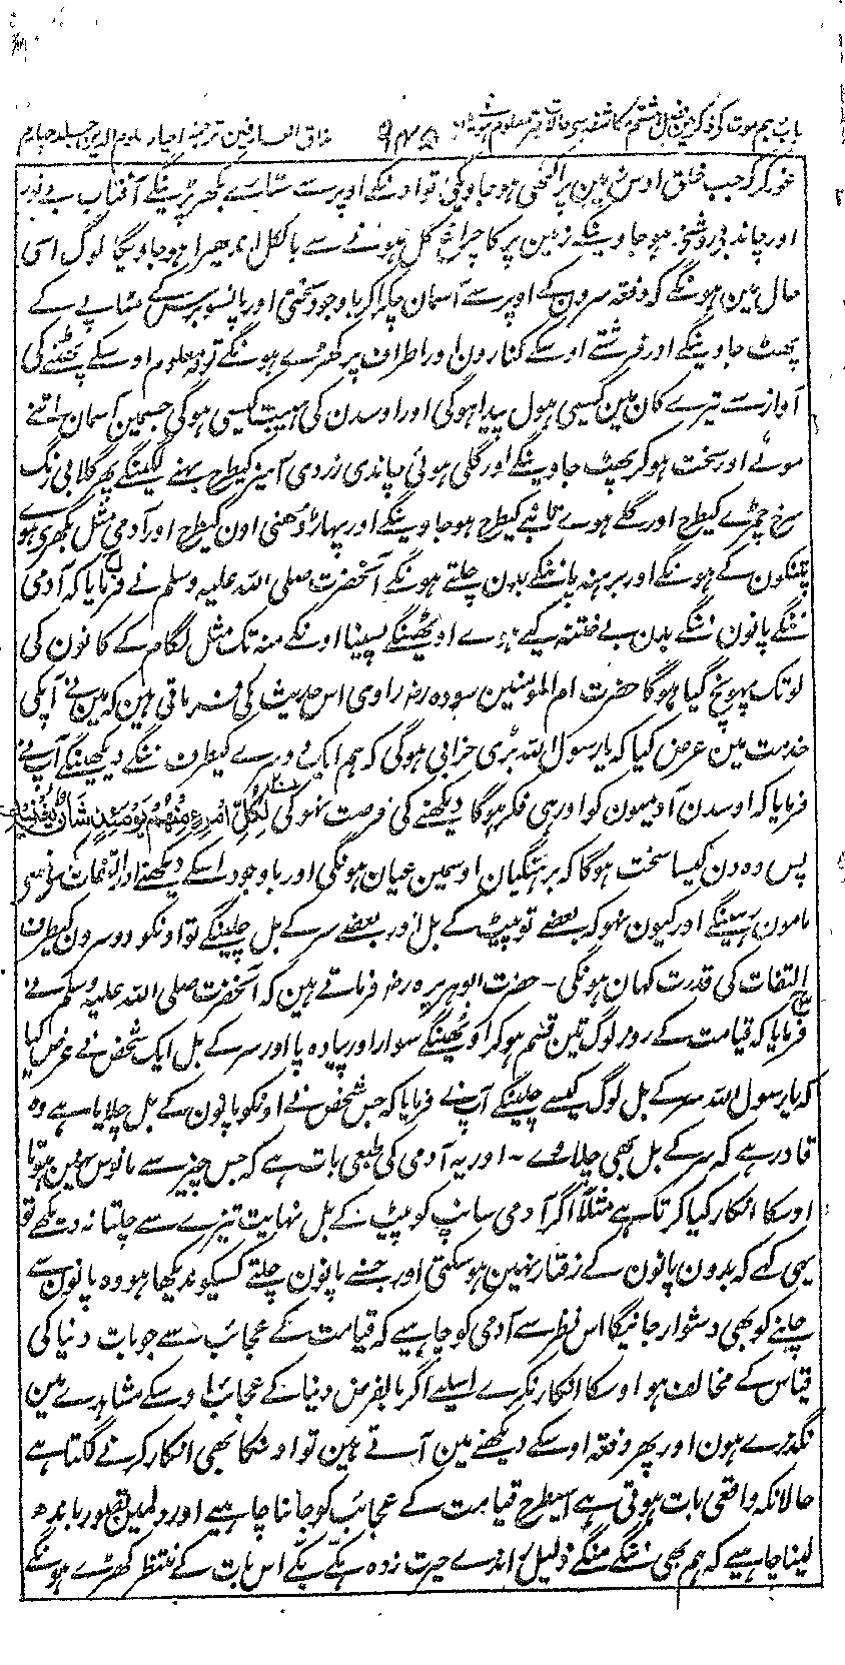 باب دہم موت کے ذکر میں فصل ہشتم ۹۴۵ مذاق العارفین ترجمہ احیاء علوم الدین جلد چہارم
غور کر کہ جب خلق اوس زمین پر اکٹھی ہو جاویگی تو اونکے اوپر سے ستارے بکھر پڑینگے آفتاب بے نور
اور چاند بے روشنی ہو جاوینگے زمین پر کا چراغ گل ہونے سے بالکل اندھیرا ہو جاویگا لوگ اسی
حال مین ہونگے کہ دفعۃ سرون کے اوپر سے آسمان چکرا کر باوجود سختی اور پانسو برس کے مٹاپے کے
پھٹ جاوینگے اور فرشتے اوسکے کنارون اور اطراف پر کھڑے ہونگے تو نہ معلوم اوسکے پھٹنے کی
آواز سے تیرے کان مین کیسی ہول پیدا ہوگی اور اوسدن کی ہیبت کیسی ہوگی جسمین آسمان اتنے
موٹے اور سخت ہو کر پھٹ جاوینگے اور گلی ہوئی چاندی زردی آمیز کیطرح بہنے لگینگے پھر گلابی رنگ
سرخ چمڑے کیطرح اور گلے ہوے تانبے کیطرح ہو جاوینگے اور پہاڑ دھنی اون کیطرح اور آدمی مثل بکھری ہوے
پتنگون کے ہونگے اور برہنہ پا ننگے بدن چلتے ہونگے آنحضرت صلی اللہ علیہ وسلم نے فرمایا کہ آدمی
ننگے پانون ننگے بدن بے ختنہ کیے ہوے اوٹھینگے پسینا اونکے منہ تک مثل لگام کے کانون کی
لو تک پہونچ گیا ہوگا حضرت ام المومنین سودہ رضہ راوی اس حدیث کی فرماتی ہین کہ مین نے آپکی
خدمت مین عرض کیا کہ یا رسول اللہ بڑی خرابی ہوگی کہ ہم ایک دوسرے کیطرف ننگے دیکھینگے آپ نے
فرمایا کہ اوسدن آدمیون کو اور ہی فکر ہوگا دیکھنے کی فرصت نہوگی لِكُلِّ امْرِءٍ مِنْهُمْ يَوْمَئِذٍ شَأْنٌ يُغْنِيهِ
پس وہ دن کیسا سخت ہوگا کہ برہنگیان اوسمین عیان ہونگی اور باوجود اسکے دیکھنے اور التفات کرنے سے
مامون رہینگے اور کیون نہو کہ بعضے تو پیٹ کے بل اور بعضے سر کے بل چلینگے تو اونکو دوسرون کیطرف
التفات کی قدرت کہان ہونگی ۔ حضرت ابوہریرہ رضہ فرماتے ہین کہ آنحضرت صلی اللہ علیہ وسلم نے
فرمایا کہ قیامت کے روز لوگ تین قسم ہو کر اوٹھینگے سوار اور پیادہ پا اور سر کے بل ایک شخص نے عرض کیا
کہ یا رسول اللہ سر کے بل لوگ کیسے چلینگے آپ نے فرمایا کہ جس شخص نے اونکو پانون کے بل چلایا ہے وہ
قادر ہے کہ سر کے بل بھی چلاوے ۔ اور یہ آدمی کی طبعی بات ہے کہ جس چیز سے مانوس نہین ہوتا
اوسکا انکار کیا کرتا ہے مثلاً اگر آدمی سانپ کو پیٹ کے بل نہایت تیزی سے چلتا نہ دیکھے تو
یہی کہے کہ بدون پانون کے رفتار نہین ہو سکتی اور جسنے پانون چلتے کسیکو ندیکھا ہو وہ پانون سے
چلنے کو بھی دشوار جانیگا اس نظر سے آدمی کو چاہیے کہ قیامت کے عجائب سے جو بات دنیا کی
قیاس کے مخالف ہو اوسکا انکار نکرے اسلیے اگر بالفرض دنیا کے عجائب اوسکے مشاہدے مین
نگذرے ہون اور پھر دفعۃ اوسکے دیکھنے مین آتے ہین تو اونکا بھی انکار کرنے لگتا ہے
حالانکہ واقعی بات ہوتی ہے اسیطرح قیامت کے عجائب کو جاننا چاہیے اور دلمین تصور باندھ
لینا چاہیے کہ ہم بھی ننگے منگے ذلیل راندے حیرت زدہ ہکے بکے اس بات کے منتظر کھڑے ہونگے